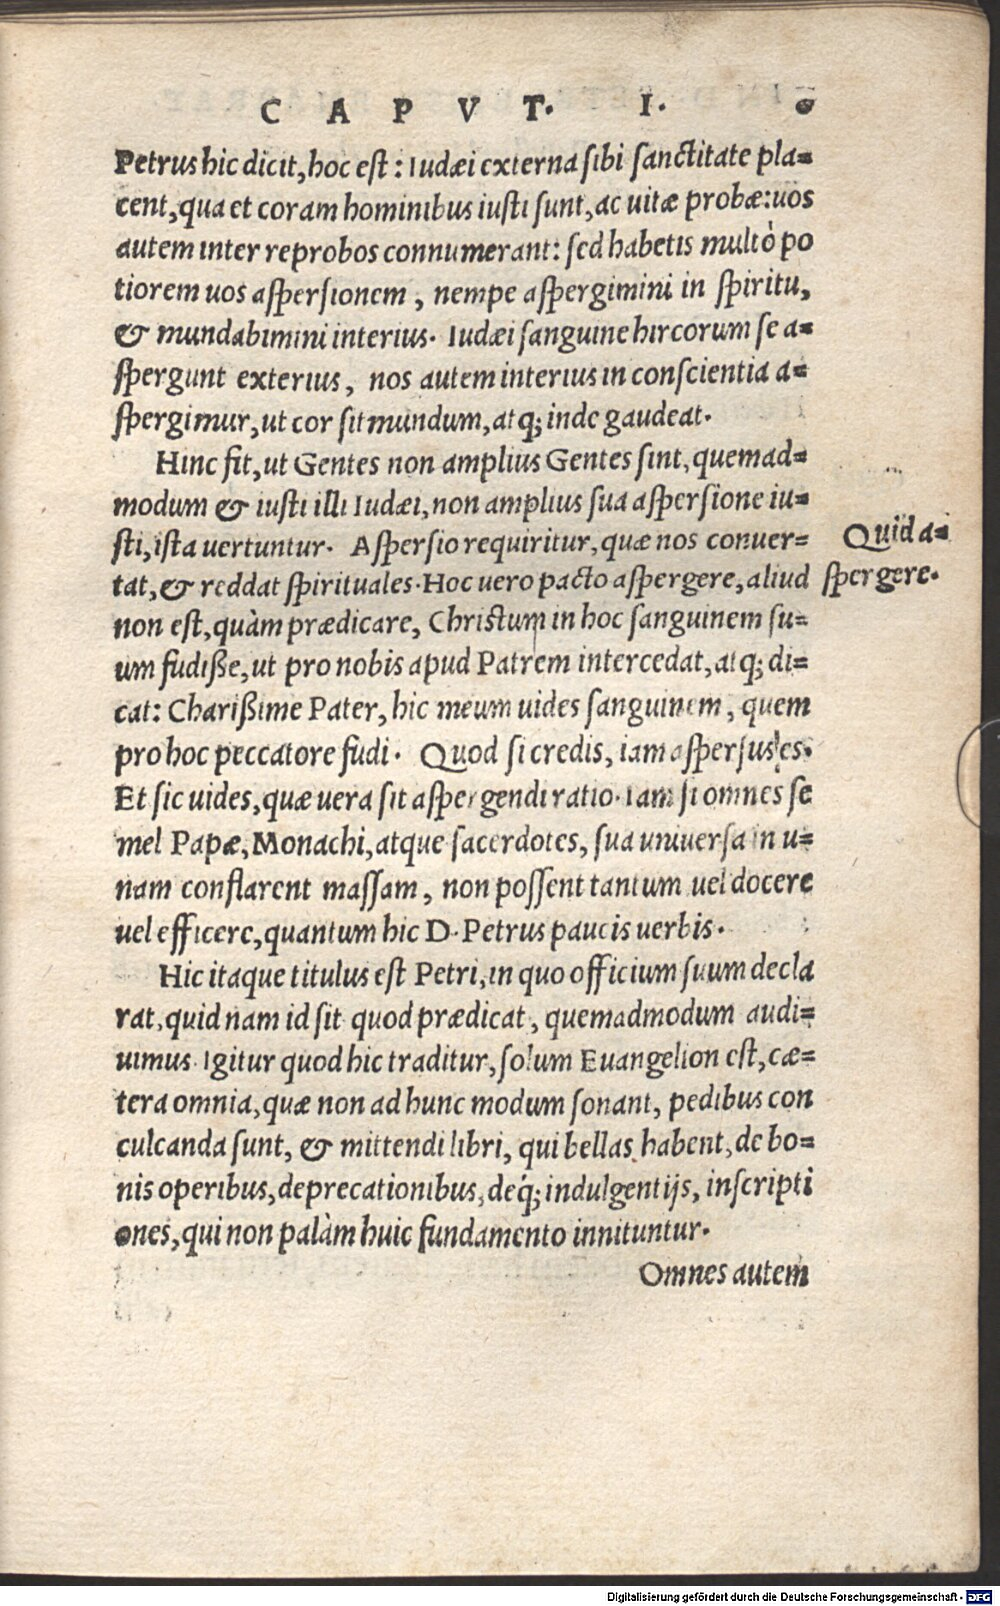 CAPVT. I. 6
Petrus hic dicit, hoc est: Iudæi externa sibi sanctitate pla=
cent, qua et coram hominibus iusti sunt, ac uitæ probæ: uos
autem inter reprobos connumerant: sed habetis multò po
tiorem uos aspersionem, nempe aspergimini in spiritu,
& mundabimini interius. Iudæi sanguine hircorum se a=
spergunt exterius, nos autem interius in conscientia a=
spergimur, ut cor sit mundum, atq; inde gaudeat.
Hinc fit, ut Gentes non amplius Gentes sint, quemad=
modum & iusti illi Iudæi, non amplius sua aspersione iu=
sti, ista uertuntur. Aspersio requiritur, quæ nos conuer=
Quid a=
tat, & reddat spirituales. Hoc uero pacto aspergere, aliud
spergere.
non est, quàm prædicare, Christum in hoc sanguinem su=
um fudiße, ut pro nobis apud Patrem intercedat, atq; di=
cat: Charißime Pater, hic meum uides sanguinem, quem
pro hoc peccatore fudi. Quod si credis, iam aspersus es.
Et sic uides, quæ uera sit aspergendi ratio. Iam si omnes se
mel Papæ, Monachi, atque sacerdotes, sua uniuersa in u=
nam conflarent massam, non possent tantum uel docere
uel efficere, quantum hic D. Petrus paucis uerbis.
Hic itaque titulus est Petri, in quo officium suum decla
rat, quid nam id sit quod prædicat, quemadmodum audi=
uimus. Igitur quod hic traditur, solum Euangelion est, cæ=
tera omnia, quæ non ad hunc modum sonant, pedibus con
culcanda sunt, & mittendi libri, qui bellas habent, de bo=
nis operibus, deprecationibus, deq́; indulgentijs, inscripti
ones, qui non palàm huic fundamento innituntur.
Omnes autem
Digitalisierung gefördert durch die Deutsche Forschungsgemeinschaft - DFG